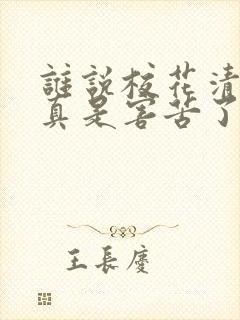 誰說校花清
真是害苦了
王長慶